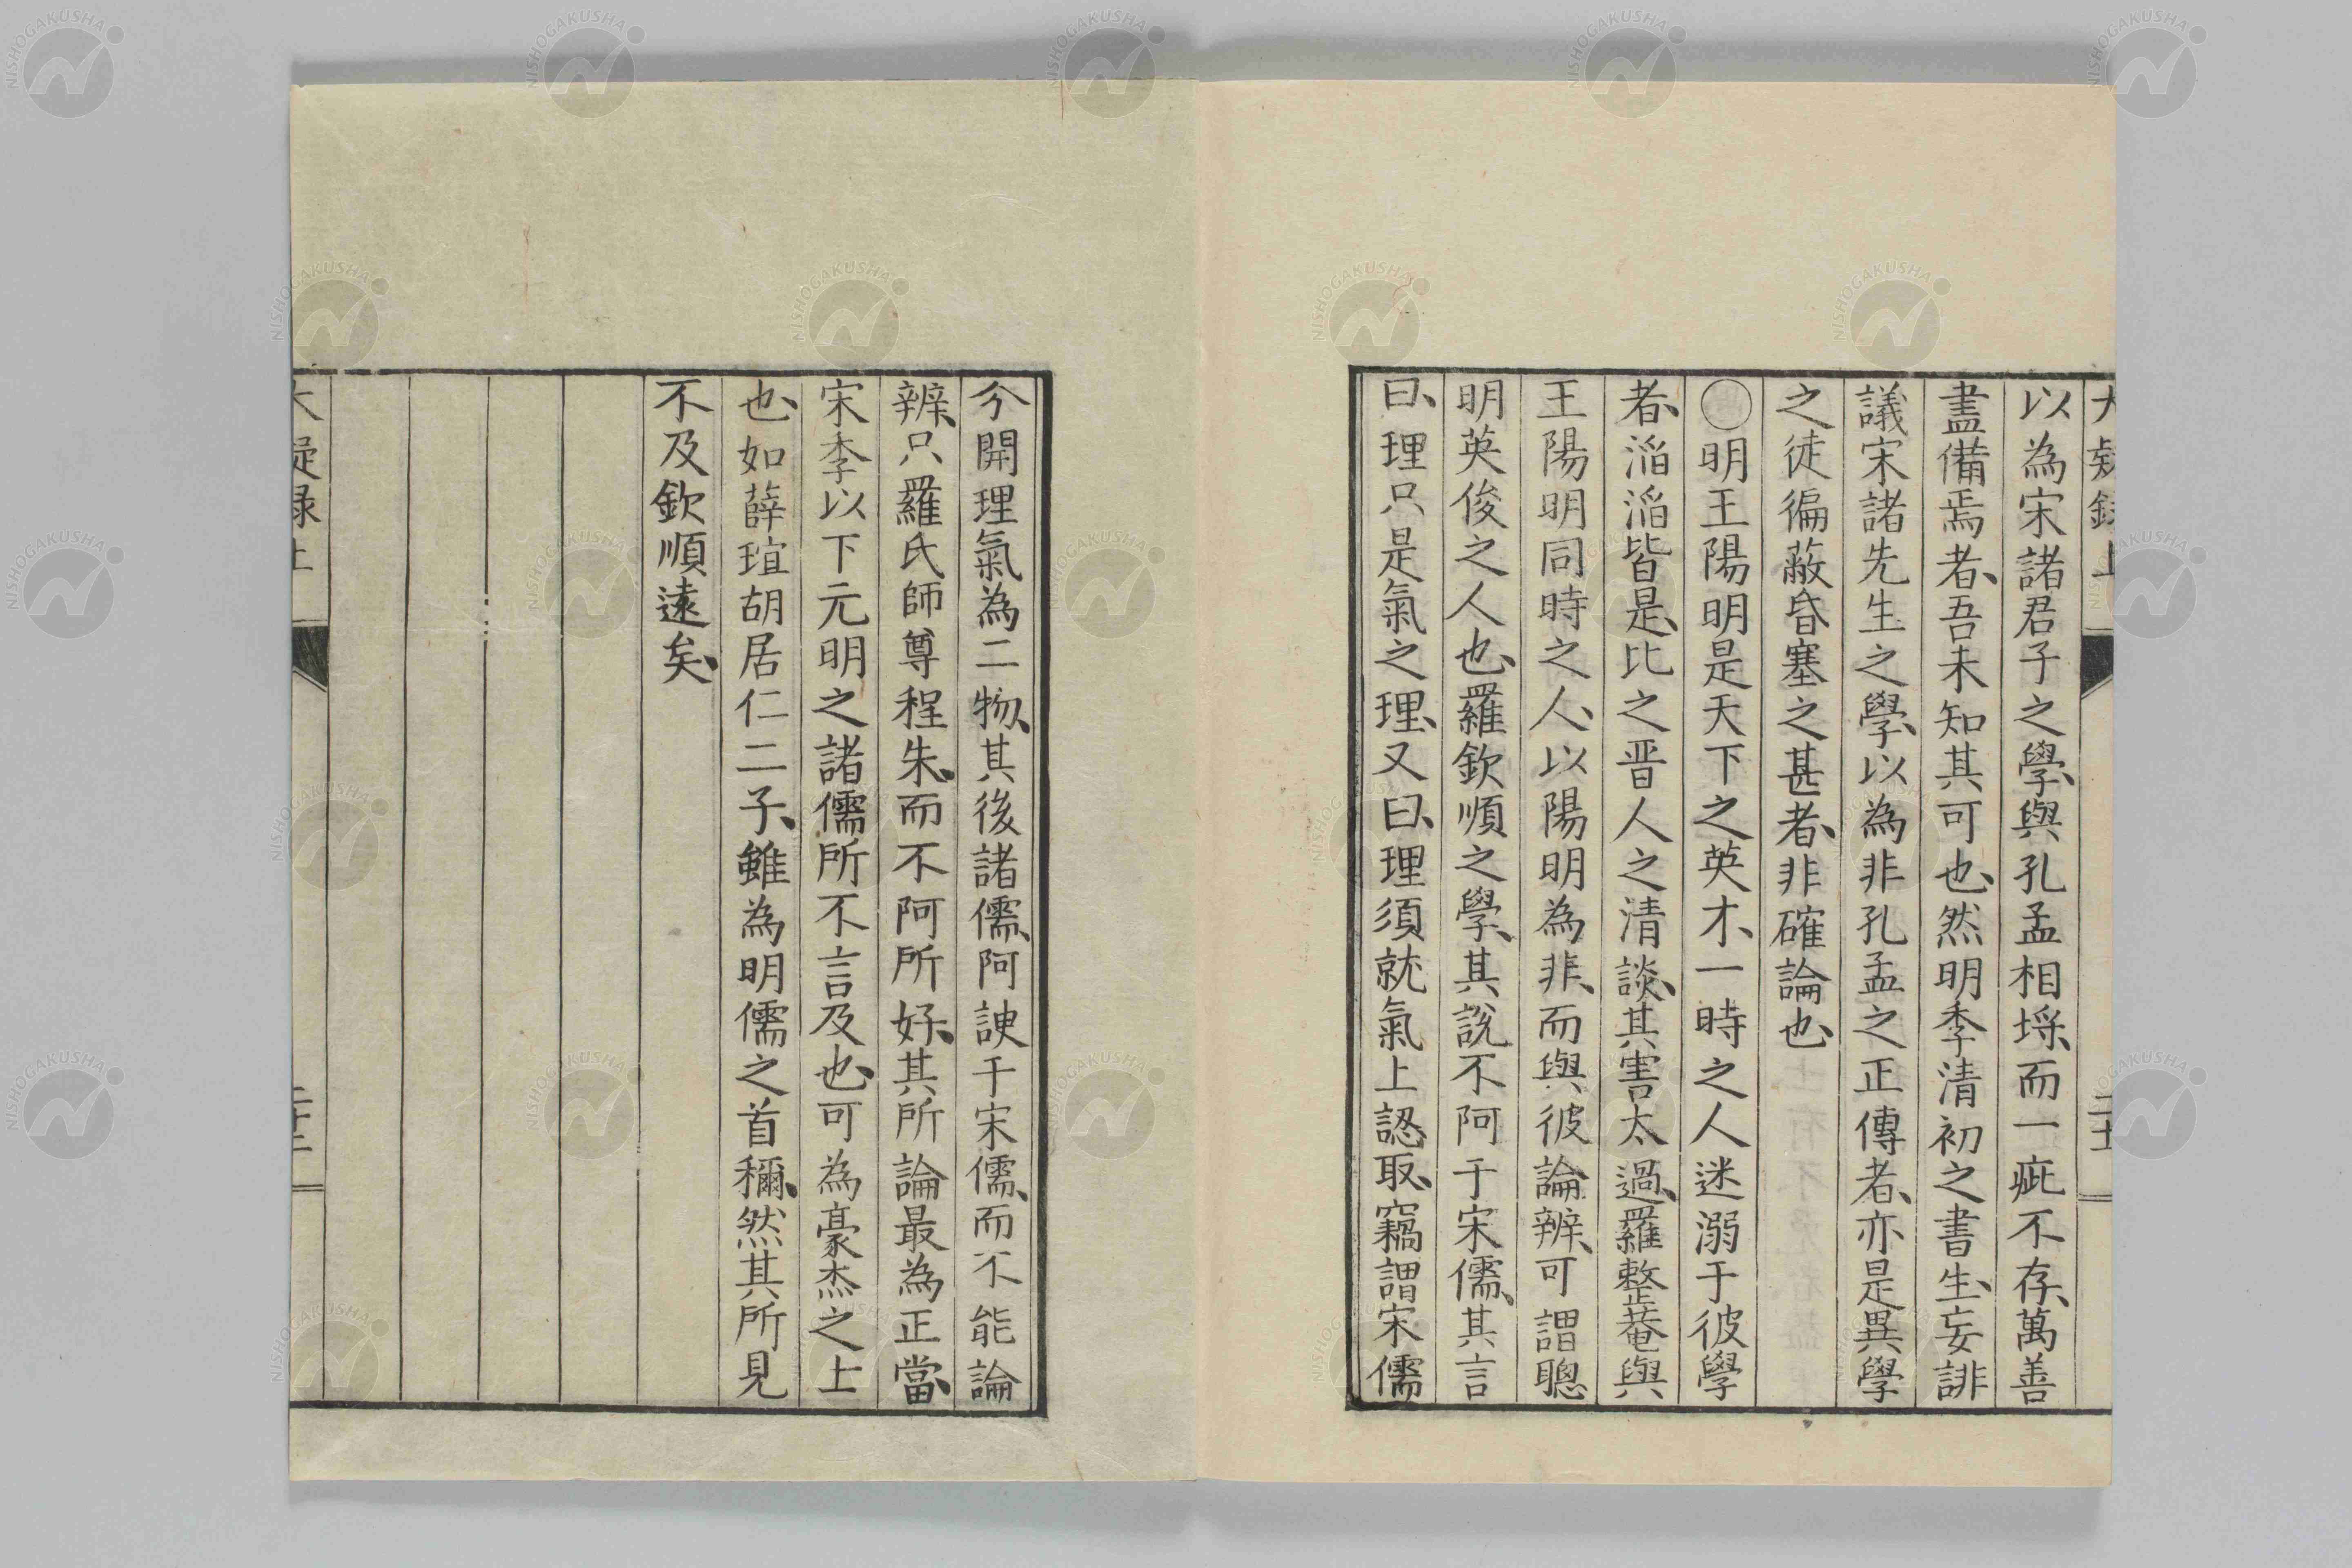 大疑錄上
二十一
以為宋諸君子之學、與孔孟相埒、而一疵不存、萬善
盡備焉者、吾未知其可也、然明季清初之書生、妄誹
議宋諸先生之學、以為非孔孟之正傳者、亦是異學
之徒徧蔽昏塞之甚者、非確論也、
〇明王陽明是天下之英才、一時之人迷溺于彼學
者、滔滔皆是、比之晋人之清談、其害太過、羅整菴與
王陽明同時之人、以陽明為非、而與彼論辨、可謂聰
明英俊之人也、羅欽順之學、其說不阿于宋儒、其言
曰、理只是氣之理、又曰、理須就氣上認取、竊謂宋儒
分開理氣為二物、其後諸儒、阿諛于宋儒、而不能論
辨、只羅氏師尊程朱、而不阿所好、其所論最為正當、
宋季以下元明之諸儒所不言及也、可為豪杰之士
也、如薛瑄胡居仁二子、雖為明儒之首稱、然其所見
不及欽順遠矣、
大疑錄上
NISHOGAKUSHA